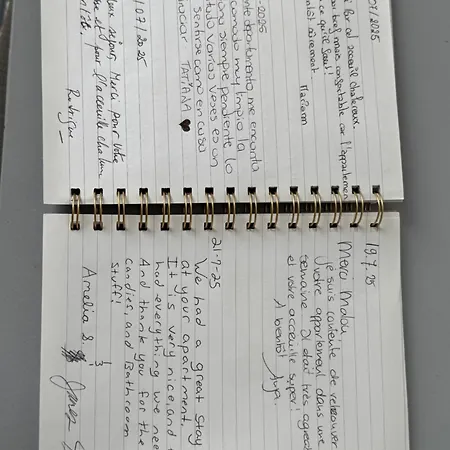 07/2025
acceuil chaleureux.
bref mais confortable car l'appartement
ce qu'il faut!
sûrement.
-2025
departamento, me encanta
comodo muy limpio la
siempre pendiente lo
varias veces es un
sentirse como en casa
TATIANA ♥
/07/2025
séjour, Merci pour votre
et pour l'acceuille
19.7.25
Merci Malou,
je suis contente de retrouver
votre appartement dans une
semaine. Il était très
et votre acceuille super!
A bientôt
21-7-25
We had a great stay
at your apartment.
It is very nice, and
had everything we
And thank you for the
candies, and Bathroom
stuff!
Amelia S.